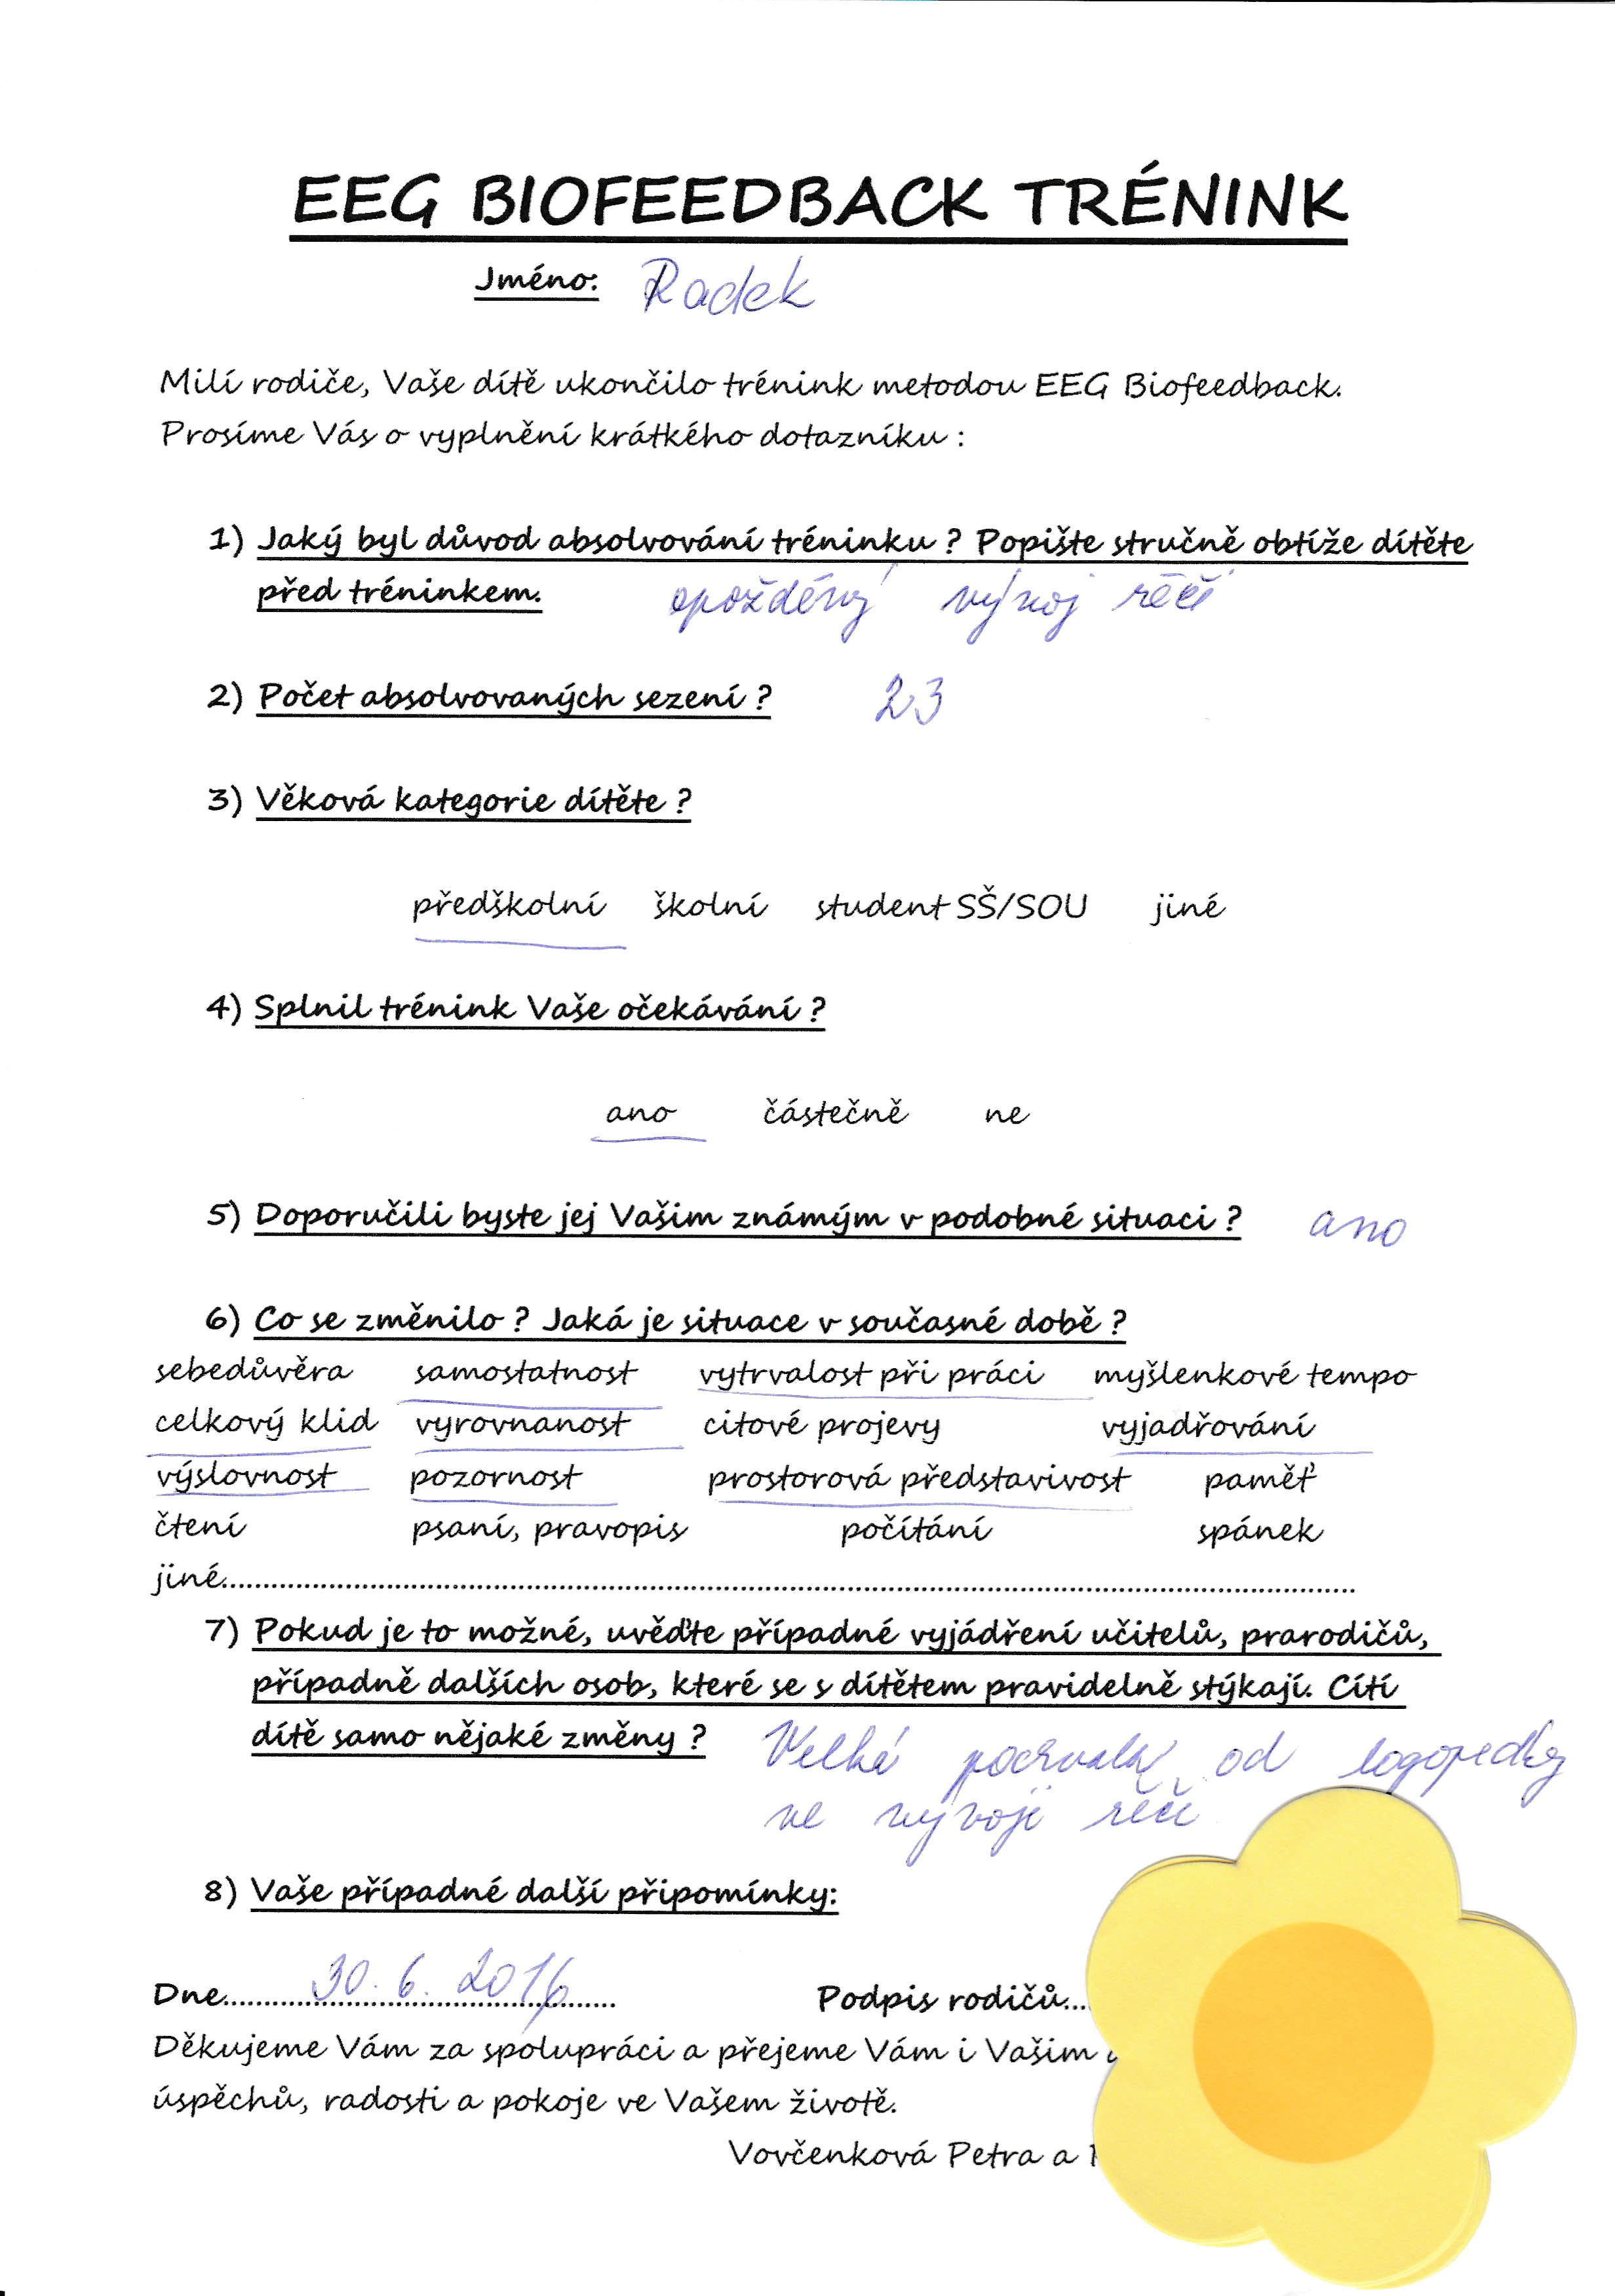 EEG BIOFEEDBACK TRÉNINK
Jméno: Radek
Milí rodiče, Vaše dítě ukončilo trénink metodou EEG Biofeedback.
Prosíme Vás o vyplnění krátkého dotazníku :
1) Jaký byl důvod absolvování tréninku ? Popište stručně obtíže dítěte
před tréninkem. opožděný vývoj řečí
2) Počet absolvovaných sezení ? 23
3) Věková kategorie dítěte ?
předškolní školní student SŠ/SOU jiné
4) Splnil trénink Vaše očekávání ?
ano částečně ne
5) Doporučili byste jej Vašim známým v podobné situaci ? ano
6) Co se změnilo ? Jaká je situace v současné době ?
sebedůvěra samostatnost vytrvalost při práci myšlenkové tempo
celkový klid vyrovnanost citové projevy vyjadřování
výslovnost pozornost prostorová představivost paměť
čtení psaní, pravopis počítání spánek
jiné..........
7) Pokud je to možné, uvěďte případné vyjádření učitelů, prarodičů,
případně dalších osob, které se s dítětem pravidelně stýkají. Cítí
dítě samo nějaké změny ? Velká pochvala od logopedky
ve vývoji řeči
8) Vaše případné další připomínky:
Dne 30. 6. 2016 Podpis rodičů...
Děkujeme Vám za spolupráci a přejeme Vám i Vašim
úspěchů, radosti a pokoje ve Vašem životě.
Vovčenková Petra a